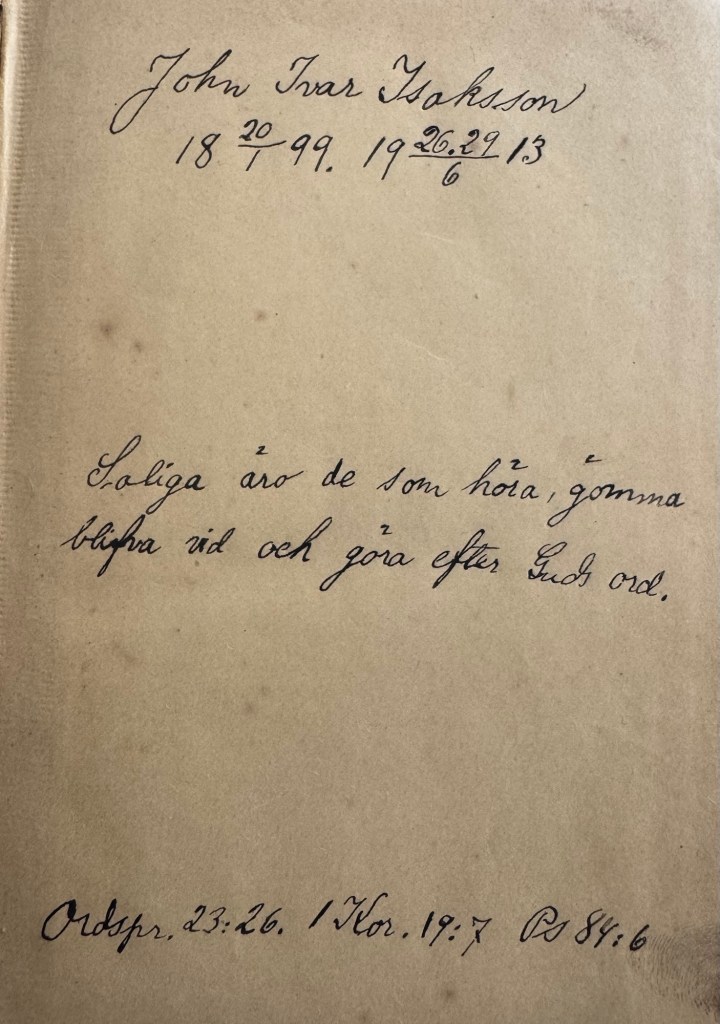 John Ivar Isaksson
18 20/1 99. 19 26.29/6 13
Saliga äro de som höra, gömma
blifva vid och göra efter Guds ord.
Ordspr. 23:26. 1 Kor. 19:7 Ps 84:6